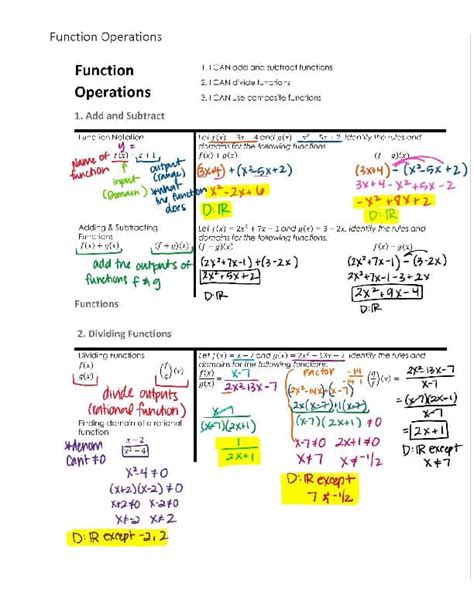 Function Operations
Function
Operations
1. I CAN add and subtract functions
2. I CAN divide functions
3. I CAN use composite functions
1. Add and Subtract
Function Notation
y =
Name of f(x) = x+1
function
input
(Domain)
output
(range)
*what
by function
does
Let f(x) = 3x + 4 and g(x) = x² - 5x + 2. Identify the rules and
domains for the following functions.
f(x) + g(x)
(3x+4) + (x²-5x+2)
x²-2x+6
D: ℝ
(f - g)(x)
(3x+4) - (x²-5x+2)
3x+4 - x²+5x-2
-x²+8x+2
D: ℝ
Adding & Subtracting
Functions
f(x) + g(x) (f + g)(x)
add the outputs of
functions f & g
Let f(x) = 2x² + 7x - 1 and g(x) = 3 - 2x. Identify the rules and
domains for the following functions.
(f + g)(x)
(2x²+7x-1) + (3-2x)
2x²+5x+2
D: ℝ
f(x) - g(x)
(2x²+7x-1) - (3-2x)
2x²+7x-1-3+2x
2x²+9x-4
D: ℝ
Functions
2. Dividing Functions
Dividing Functions
f(x)
g(x)
(f/g)(x)
divide outputs
(rational function)
Finding domain of a rational
function
*denom
can't ≠0
x-2
x²-4
x²-4≠0
(x+2)(x-2)≠0
x+2≠0 x-2≠0
x≠-2 x≠2
D: ℝ except -2, 2
Let f(x) = x - 7 and g(x) = 2x² - 13x - 7. Identify the rules and
domains for the following functions.
f(x)
g(x)
x-7
2x²-13x-7
x-7
(x-7)(2x+1)
1
2x+1
FACTOR
-14
-14 1
(2x²-14x)+(x-7)
2x(x-7)+1(x-7)
(x-7)(2x+1)≠0
x-7≠0 2x+1≠0
x≠7 x≠-1/2
D: ℝ except
7 & -1/2
(g/f)(x) =
2x²-13x-7
x-7
= (x-7)(2x+1)
x-7
= 2x+1
D: ℝ except
x≠7